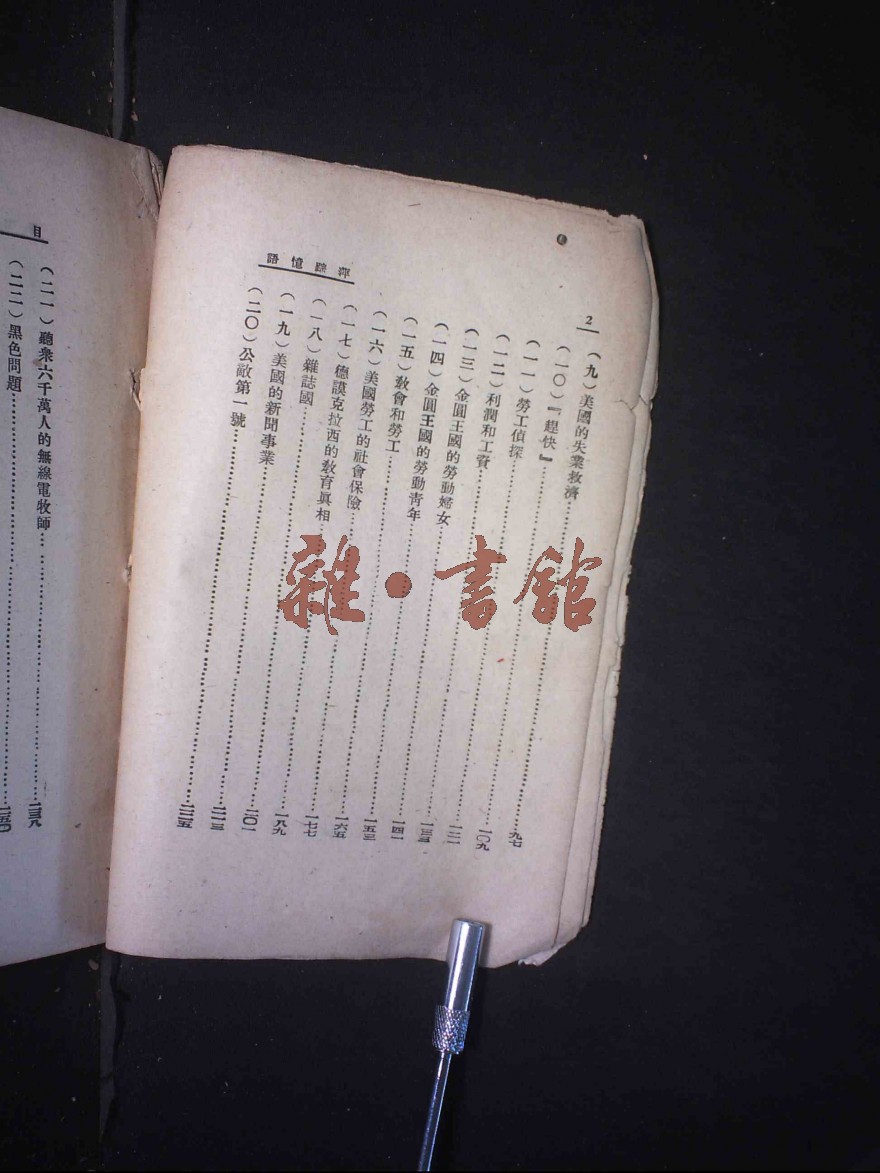 2
萍蹤憶語
（九）美國的失業救濟……九七
（一〇）『趕快』……一〇九
（一一）勞工偵探……一二一
（一二）利潤和工資……一三三
（一三）金圓王國的勞動婦女……一四一
（一四）金圓王國的勞動青年……一五三
（一五）敎會和勞工……一六五
（一六）美國勞工的社會保險……一七七
（一七）德謨克拉西的敎育眞相……一八九
（一八）雜誌國……二〇一
（一九）美國的新聞事業……二一三
（二〇）公敵第一號……二二五
目
（二一）聽衆六千萬人的無線電牧師……二三八
（二二）黑色問題……二五〇
雜·書館